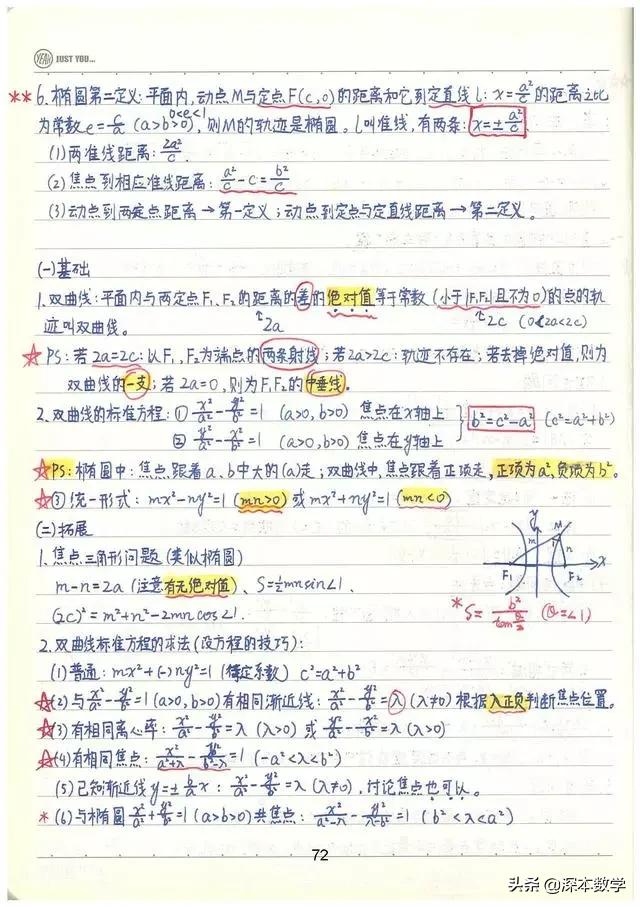 YEAH JUST YOU...
** 6. 椭圆第二定义: 平面内, 动点M与定点F(c,0)的距离和它到定直线l: x=a²/c 的距离之比
为常数e=c/a (a>b>0), 0<e<1 则M的轨迹是椭圆。l叫准线, 有两条: x=±a²/c.
(1) 两准线距离: 2a²/c.
(2) 焦点到相应准线距离: a²/c - c = b²/c
(3) 动点到两定点距离→第一定义; 动点到定点与定直线距离→第二定义。
(一)基础
1. 双曲线: 平面内与两定点F₁、F₂的距离的差的绝对值等于常数(小于|F₁F₂|且不为0)的点的轨
迹叫双曲线。 ↑2a ↑2c (0<2a<2c)
☆ PS: 若2a=2c: 以F₁、F₂为端点的两条射线; 若2a>2c: 轨迹不存在; 若去掉绝对值, 则为
双曲线的一支; 若2a=0, 则为F₁F₂的中垂线。
2. 双曲线的标准方程: ① x²/a² - y²/b² = 1 (a>0, b>0) 焦点在x轴上
② y²/a² - x²/b² = 1 (a>0, b>0) 焦点在y轴上 } b²=c²-a² (c²=a²+b²)
☆ PS: 椭圆中: 焦点跟着a、b中大的(a)走; 双曲线中, 焦点跟着正项走, 正项为a², 负项为b².
☆ ③ 统一形式: mx²-ny²=1 (mn>0) 或 mx²+ny²=1 (mn<0)
(二)拓展
1. 焦点三角形问题(类似椭圆)
m-n=2a (注意有无绝对值)、S=½mnsin∠1.
(2c)²=m²+n²-2mncos∠1.
y M 1 m n x F₁ F₂
* S= b²/tan θ/2 (θ=∠1)
2. 双曲线标准方程的求法(设方程的技巧):
(1) 普通: mx²+(-)ny²=1 (待定系数) c²=a²+b²
☆(2) 与x²/a² - y²/b² = 1 (a>0, b>0)有相同渐近线: x²/a² - y²/b² = λ (λ≠0) 根据λ正负判断焦点位置。
☆(3) 有相同离心率: x²/a² - y²/b² = λ (λ>0) 或 y²/a² - x²/b² = λ (λ>0)
☆(4) 有相同焦点: x²/a²+λ - y²/b²-λ = 1 (-a²<λ<b²)
(5) 已知渐近线y=± b/a x: x²/a² - y²/b² = λ (λ≠0), 讨论焦点也可以。
* (6) 与椭圆x²/a² + y²/b² = 1 (a>b>0)共焦点: x²/a²-λ - y²/λ-b² = 1 (b²<λ<a²)
72
头条 @深本数学